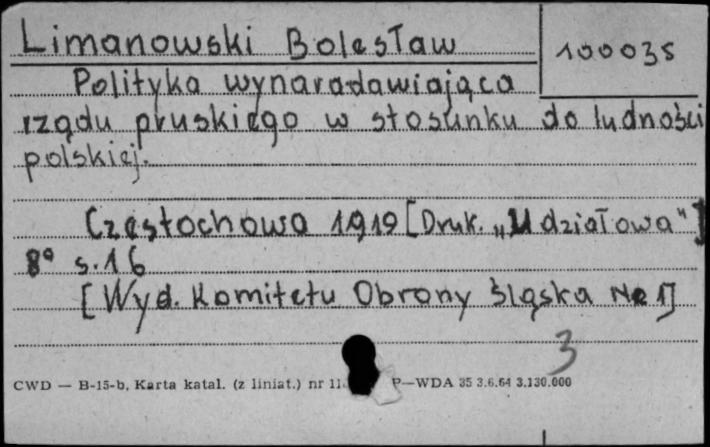 Limanowski Bolesław
100035
Polityka wynaradawiająca
rządu pruskiego w stosunku do ludności
polskiej.
Częstochowa 1919 [Druk. „Udziałowa"]
8° s. 16
[Wyd. Komitetu Obrony Śląska No 1]
3
CWD — B-15-b, Karta katal. (z liniat.) nr P—WDA 35 3.6.64 3.130.000